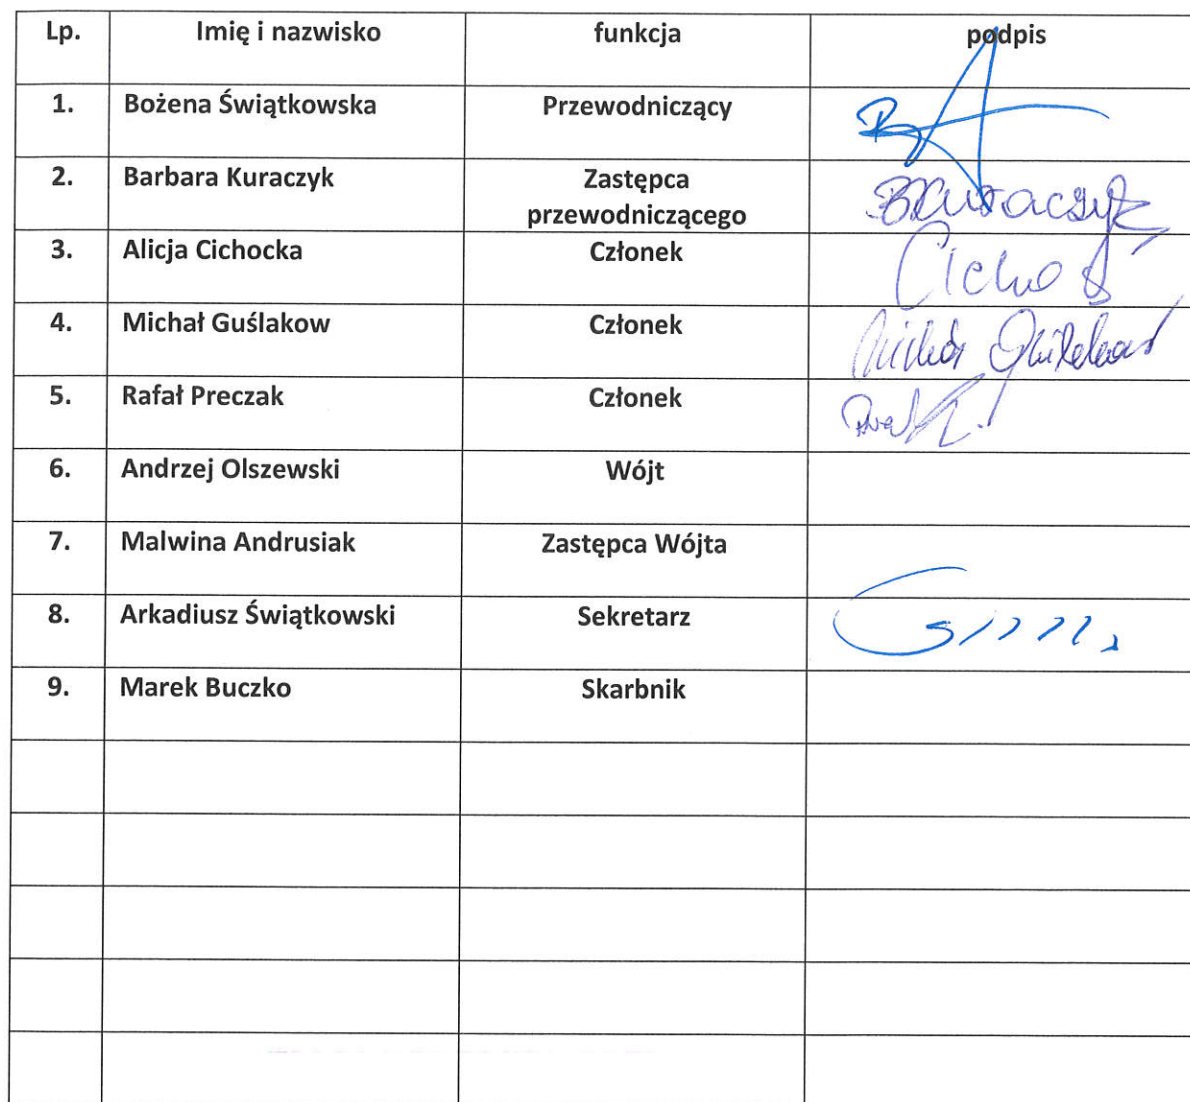 Lp. Imię i nazwisko funkcja podpis
1. Bożena Świątkowska Przewodniczący
2. Barbara Kuraczyk Zastępca przewodniczącego BKuraczyk
3. Alicja Cichocka Członek
4. Michał Guślakow Członek
5. Rafał Preczak Członek
6. Andrzej Olszewski Wójt
7. Malwina Andrusiak Zastępca Wójta
8. Arkadiusz Świątkowski Sekretarz
9. Marek Buczko Skarbnik